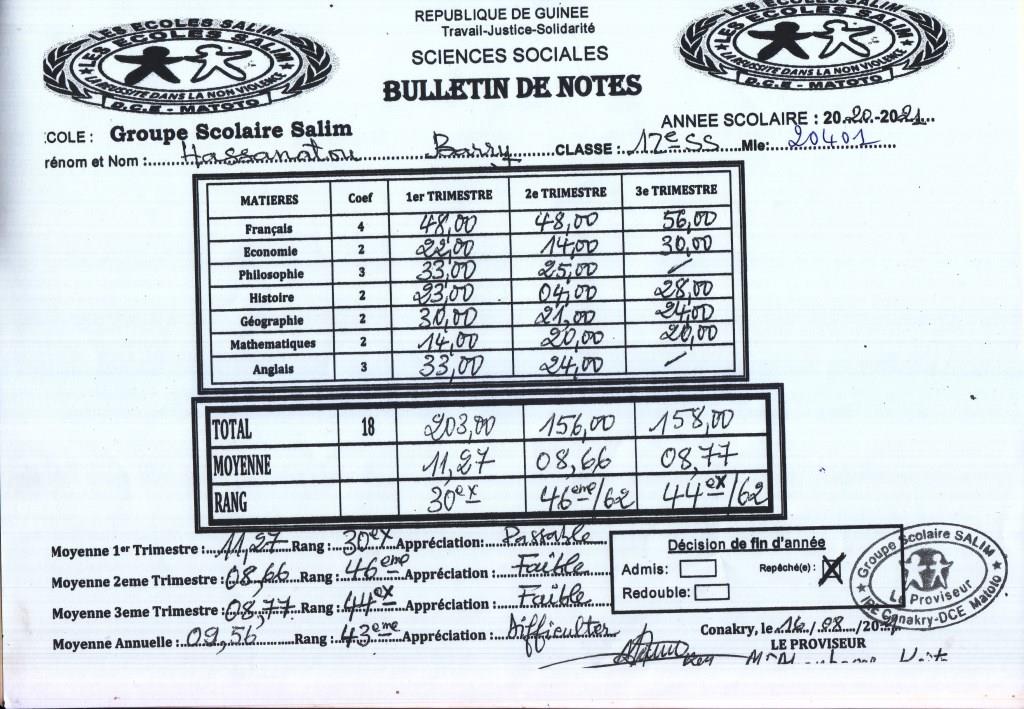 LES ECOLES SALIM
LES ECOLES SALIM
LA REUSSITE DANS LA NON VIOLENCE
D.C.E - MATOTO
REPUBLIQUE DE GUINEE
Travail-Justice-Solidarité
SCIENCES SOCIALES
BULLETIN DE NOTES
LES ECOLES SALIM
LA REUSSITE DANS LA NON VIOLENCE
D.C.E - MATOTO
COLE : Groupe Scolaire Salim ANNEE SCOLAIRE : 2020-2021
rénom et Nom : Hassanatou Barry CLASSE : 12e SS Mle: 20401
MATIERES Coef 1er TRIMESTRE 2e TRIMESTRE 3e TRIMESTRE
Français 4 48,00 48,00 56,00
Economie 2 22,00 14,00 30,00
Philosophie 3 33,00 25,00 /
Histoire 2 23,00 04,00 28,00
Géographie 2 30,00 21,00 24,00
Mathematiques 2 14,00 20,00 20,00
Anglais 3 33,00 24,00 /
TOTAL 18 203,00 156,00 158,00
MOYENNE 11,27 08,66 08,77
RANG 30ex 46eme/62 44ex/62
Moyenne 1er Trimestre : 11,27 Rang : 30ex Appréciation : Passable
Moyenne 2eme Trimestre : 08,66 Rang : 46eme Appréciation : Faible
Moyenne 3eme Trimestre : 08,77 Rang : 44ex Appréciation : Faible
Moyenne Annuelle : 09,56 Rang : 43eme Appréciation : Difficulter
Décision de fin d'année
Admis: Repêché(e) : X
Redouble:
Groupe Scolaire SALIM
Le Proviseur
IRE Conakry-DCE Matoto
Conakry, le 16/08/20
LE PROVISEUR